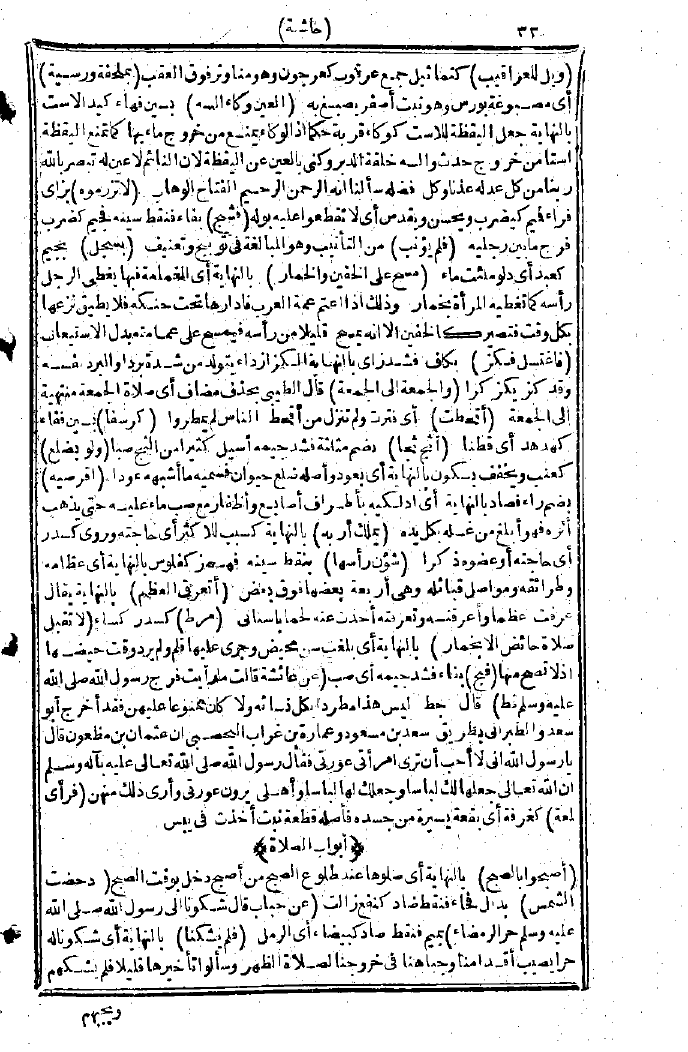 (حاشية) ٣٣
(ويل للعراقيب) كتماثيل جمع عرقوب كعرجون وهو مناوتر فوق العقب (بملحفة ورسية)
أى مصبوغة بورس وهو نبت أصفر يصبغ به (العين وكاء السه) بسين فهاء كيد الاست
بالنهاية جعل اليقظة للاست كوكاء قربة حكما اذ الوكاء يمنع من خروج ماء بها كما تمنع اليقظة
استا من خروج حدث والسه حلقة الدبر وكنى بالعين عن اليقظة لان النائم لا عين له تبصر بالله
ربنا من كل عدله عذنا وكل فضله سألنا انه الرحمن الرحيم الفتاح الوهاب (لا تزرموه) بزاى
فراء فميم كيضرب ويحسن ويقدس أى لا تقطعوا عليه بوله (فشج) بفاء فنقط سينه فجيم كضرب
فرج ما بين رجليه (فلم يؤنب) من التأنيب وهو المبالغة فى توبيخ وتعنيف (بسجل) بجيم
كعبد أى دلو ملئت ماء (مسح على الخفين والخمار) بالنهاية أى العمامة فبها يغطى الرجل
رأسه كما تغطيه المرأة بخمار وذلك اذا اعتم عمة العرب فادارها تحت حنكه فلا يطيق نزعها
بكل وقت فتصير كالخفين الا انه يمسح قليلا من رأسه فيمسح على عمامته بدل الاستيعاب
(فاغتسل فكز) بكاف فشد زاى بالنهاية الكز ازداء يتولد من شدة برد أو البرد نفسه
وقد كز يكز كزا (والجمعة الى الجمعة) قال الطيبى بحذف مضاف أى صلاة الجمعة منتهية
الى الجمعة (أقحطت) أى فترت ولم تنزل من أقحط الناس لم يمطروا (كرسفا) بسين ففاء
كهدهد أى قطنا (أثج ثجا) بضم مثلثة فشد جيمه أسيل كثيرا من الثج صبا (ولو بضلع)
كعنب ويخفف بسكون بالنهاية أى بعود وأصله ضلع حيوان فسمى به ما أشبهه عودا (اقرصيه)
بضم راء فصاد بالنهاية أى ادلكيه بأطراف أصابع وأظفار مع صب ماء عليه حتى يذهب
أثره فهو أبلغ من غسله بكل يده (يملك أربه) بالنهاية كسبب للاكثر أى حاجته وروى كسدر
أى حاجته أو عضوه ذكرا (شؤن رأسها) بنقط سينه فهمز كفلوس بالنهاية أى عظامه
وطرائقه ومواصل قبائله وهى أربعة بعضها فوق بعض (أتعرق العظم) بالنهاية يقال
عرقت عظما وأعرقته وتعرقته أخذت عنه لحما باسنانى (مرط) كسدر كساء (لا تقبل
صلاة حائض الا بخمار) بالنهاية أى بلغت سن محيض وجرى عليها قلم ولم يرد وقت حيضها
اذ لا تصح منها (فبج) بفاء فشد جيمه أى صب (عن عائشة قالت ما رأيت فرج رسول الله صلى الله
عليه وسلم قط) قال حط ليس هذا مطردا بكل نسائه ولا كان ممنوعا عليهن فقد أخرج أبو
سعد والطبرانى بطريق سعد بن مسعود وعمارة بن غراب اليحصبى ان عثمان بن مظعون قال
يا رسول الله انى لا أحب أن ترى امرأتى عورتى فقال رسول الله صلى الله تعالى عليه بآله وسلم
ان الله تعالى جعلها لك لباسا وجعلك لها لباسا وأهلى يرون عورتى وأرى ذلك منهن (فرأى
لمعة) كغرفة أى بقعة يسيرة من جسده فأصله قطعة نبت أخذت فى يبس
﴿أبواب الصلاة﴾
(أصبحوا بالصبح) بالنهاية أى صلوها عند طلوع الصبح من أصبح دخل بوقت الصبح (دحضت
الشمس) بدال فحاء فنقط ضاد كنفع زالت (عن خباب قال شكونا الى رسول الله صلى الله
عليه وسلم حر الرمضاء) بميم فنقط ضاد كبيضاء أى الرملى (فلم يشكنا) بالنهاية أى شكونا له
حرا يصيب أقدامنا وجباهنا فى خروجنا لصلاة الظهر وسألوا تأخيرها قليلا فلم يشكهم
ويجبهم